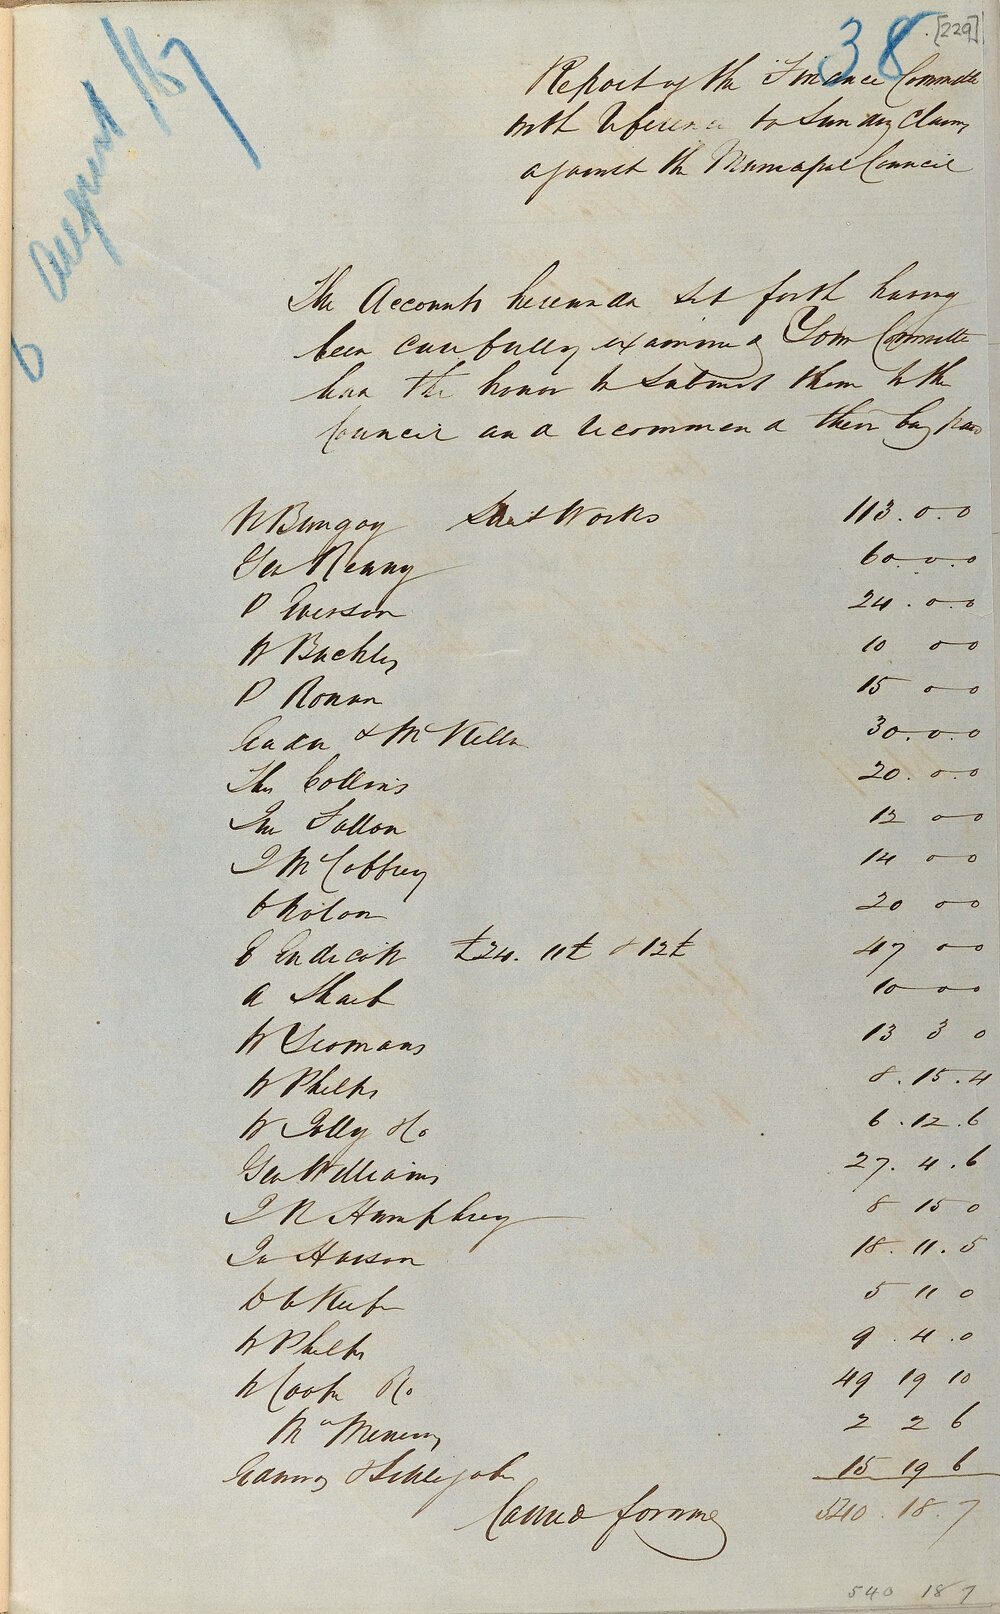 38
[229]
6 August /67
Report of the Finance Committee
with reference to Sunday Claims
against the Municipal Council
The Accounts hereunder set forth having
been carefully examined Your Committee
have the honor to submit them to the
Council and recommend their being paid
W Bungay Works 113.0.0
Geo Kenny 60.0.0
P Everson 24.0.0
W Buckley 10 0 0
P Ronan 15 0 0
& McKellar 30.0.0
Thos Collins 20.0.0
Fallon 12 0 0
J McCaffrey 14 0 0
20 0 0
E Endicott £24. 11£ & 12£ 47 0 0
A Sharb 10 0 0
W Yeomans 13 3 0
W Phelps 8.15.4
W Jolly & Co 6.12.6
Geo Williams 27.4.6
J R Humphrey 8 15 0
18.11.5
O Keefe 5 11 0
W Phelps 9.4.0
W Cooper 49 19 10
McMenemy 2 2 6
15 19 6
Carried forward 540.18.7
540 18 7